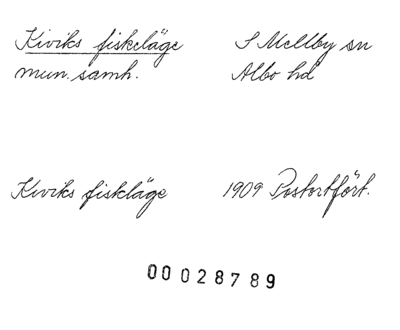 Kiviks fiskeläge
mun. samh.
S Mellby sn
Albo hd
Kiviks fiskläge
1909 Postortfört.
00028789